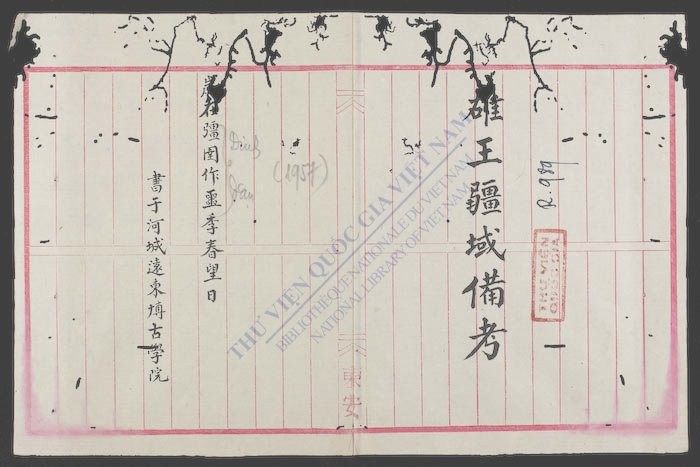 R.989
THƯ VIỆN
QUỐC GIA
䧺王疆域備考
東安
THƯ VIỆN QUỐC GIA VIỆT NAM
BIBLIOTHÈQUE NATIONALE DU VIETNAM
NATIONAL LIBRARY OF VIETNAM
(1957)
Đinh
歲在疆圉作噩季春望日
書于河城遠東博古學院